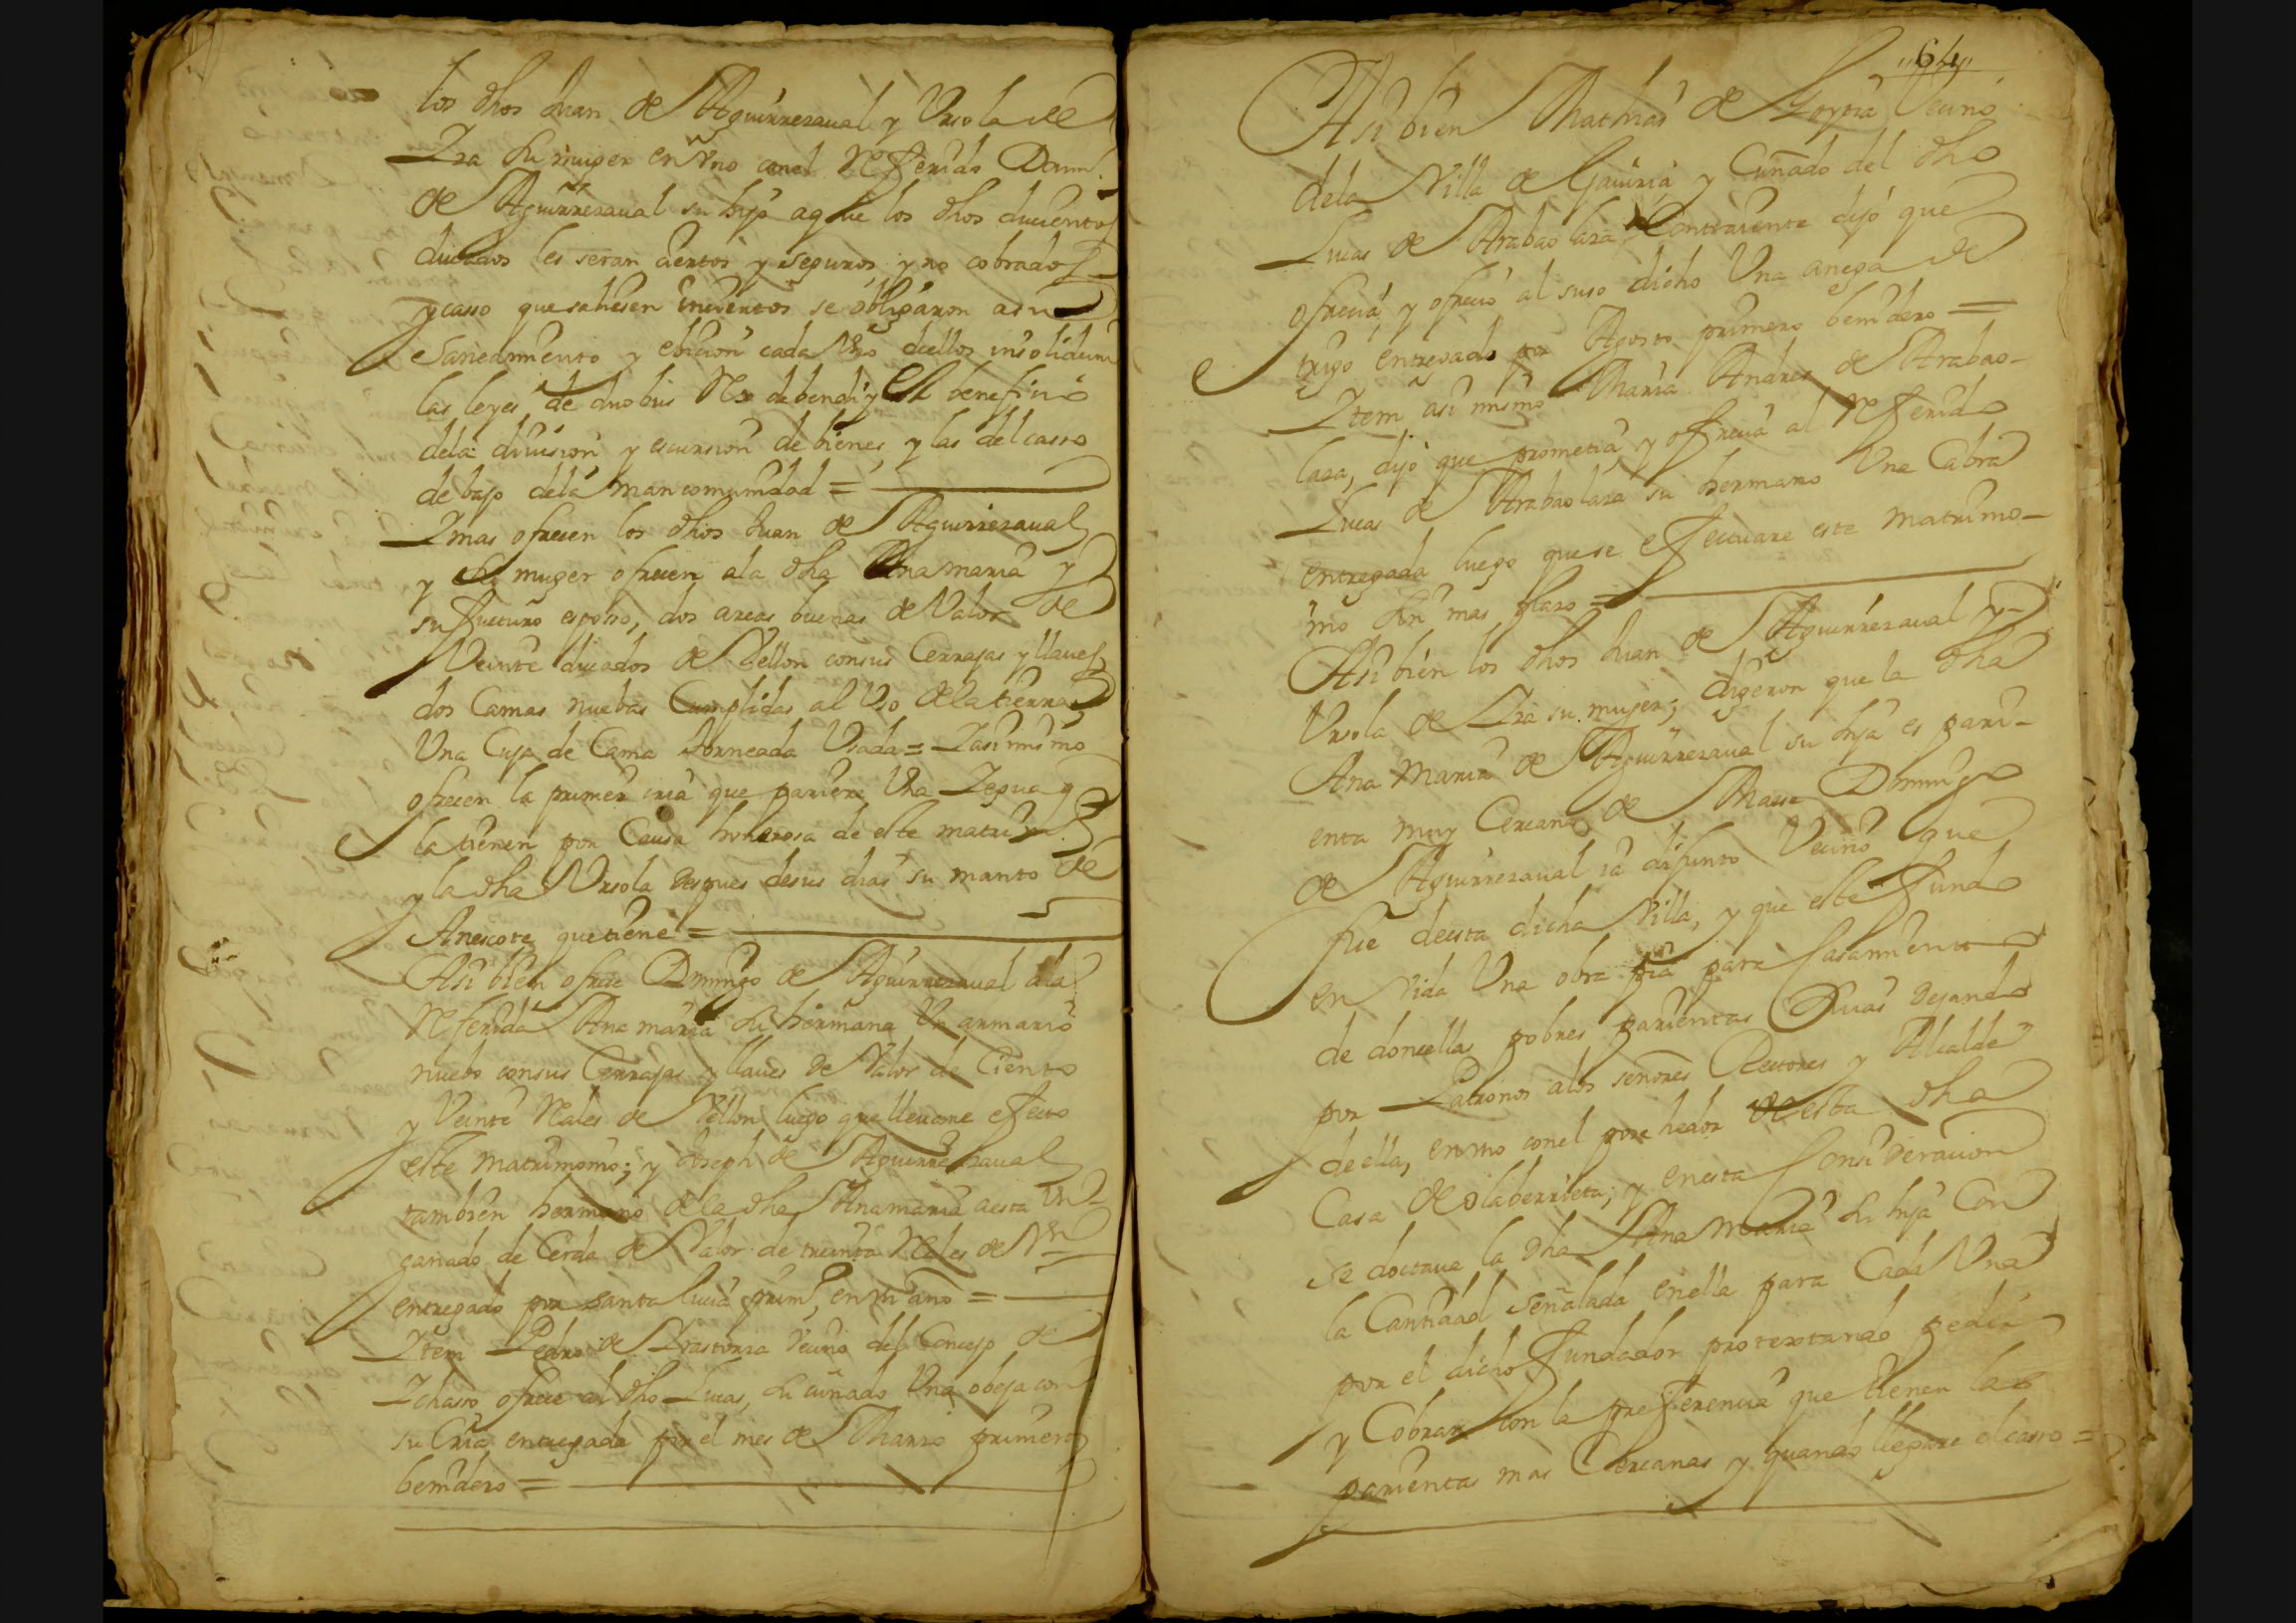 los dhos Juan de Aguirrezaual y Vrsola de
Yza su muger en vno con el Referido Domi.º
de Aguirrezaual su hijo aque los dhos ducientos
ducados les seran ciertos y seguros y no cobrados
y casso que saliesen ynciertos se obligaron a su
saneamiento y ebicion cada vno dellos insolidum
las leyes de duobus Rex debendi y el beneficio
dela diuision y escursion de bienes y las del casso
debajo dela mancomunidad =
Y mas ofrecen los dhos Juan de Aguirrezaual
y su muger ofrecen ala dha Ana maria y
su futuro esposso, dos arcas buenas de Valor de
Veinte ducados de Vellon consus Cerrajas y llaues
dos Camas nuebas Cumplidas al Vso dela tierra y
Vna Cuja de Cama torneada Vsada = Y asimismo
ofrecen la primer cria que pariere Vna Yegua q
la tienen por Causa honerosa de este matrim.º
y la dha Vrsola despues desus dias su manto de
Anescote que tiene =
Asi bien ofrece Domingo de Aguirrezaual ala
Referida Ana maria su hermana Vn armario
nuebo consus Cerrajas y llaues de Valor de Ciento
y Veinte Reales de Vellon luego que lleuare efecto
este matrimonio; y Joseph de Aguirrezaual
tambien hermano dela dha Ana maria aesta Vn
ganado de Cerda de Valor de treinta Reales de Vn
entregado por santa lucia prim.º en vn año =
Ytem Pedro de Vrastorza vecino del Concejo de
Ychasso ofrece al dho Lucas, su cuñado Vna obeja con
su Cria entregada por el mes de Marzo primero
benidero =
64
Asi bien Mathias de Loyria Vecino
dela Villa de Gauiria y Cuñado del dho
Lucas de Arabaolaza Contraiente dijo que
ofrecia y ofrecio al suso dicho Vna anega de
trigo entregada por Agosto primero benidero =
Ytem asi mismo Maria Andres de Arabao-
laza, dijo que prometia y ofrecia al Referido
Lucas de Arabaolaza su hermano Vna Cabra
entregada luego que se efectuare este matrimo-
nio sin mas plazo =
Asi bien los dhos Juan de Aguirrezaual y
Vrsola de Yza su mujer; digeron que la dha
Ana Maria de Aguirrezaual su hija es pari-
enta muy Cercana de Maese Domingo
de Aguirrezaual ia difunto Vecino que
fue desta dicha Villa, y que este fundo
en Vida Vna obra pia para Casamiento
de doncellas pobres parientas suias dejando
por Patronos alos señores Rectores y Alcalde
de ella, en vno con el posehedor de esta dha
Casa de olaberrieta; y en esta Consideracion
se doctaue la dha Ana Maria su hija Con
la Cantidad señalada en ella para Cada Vna
por el dicho fundador protextando pedir
y Cobrar con la preferencia que tienen las
parientas mas Cercanas y quando llegare el casso =